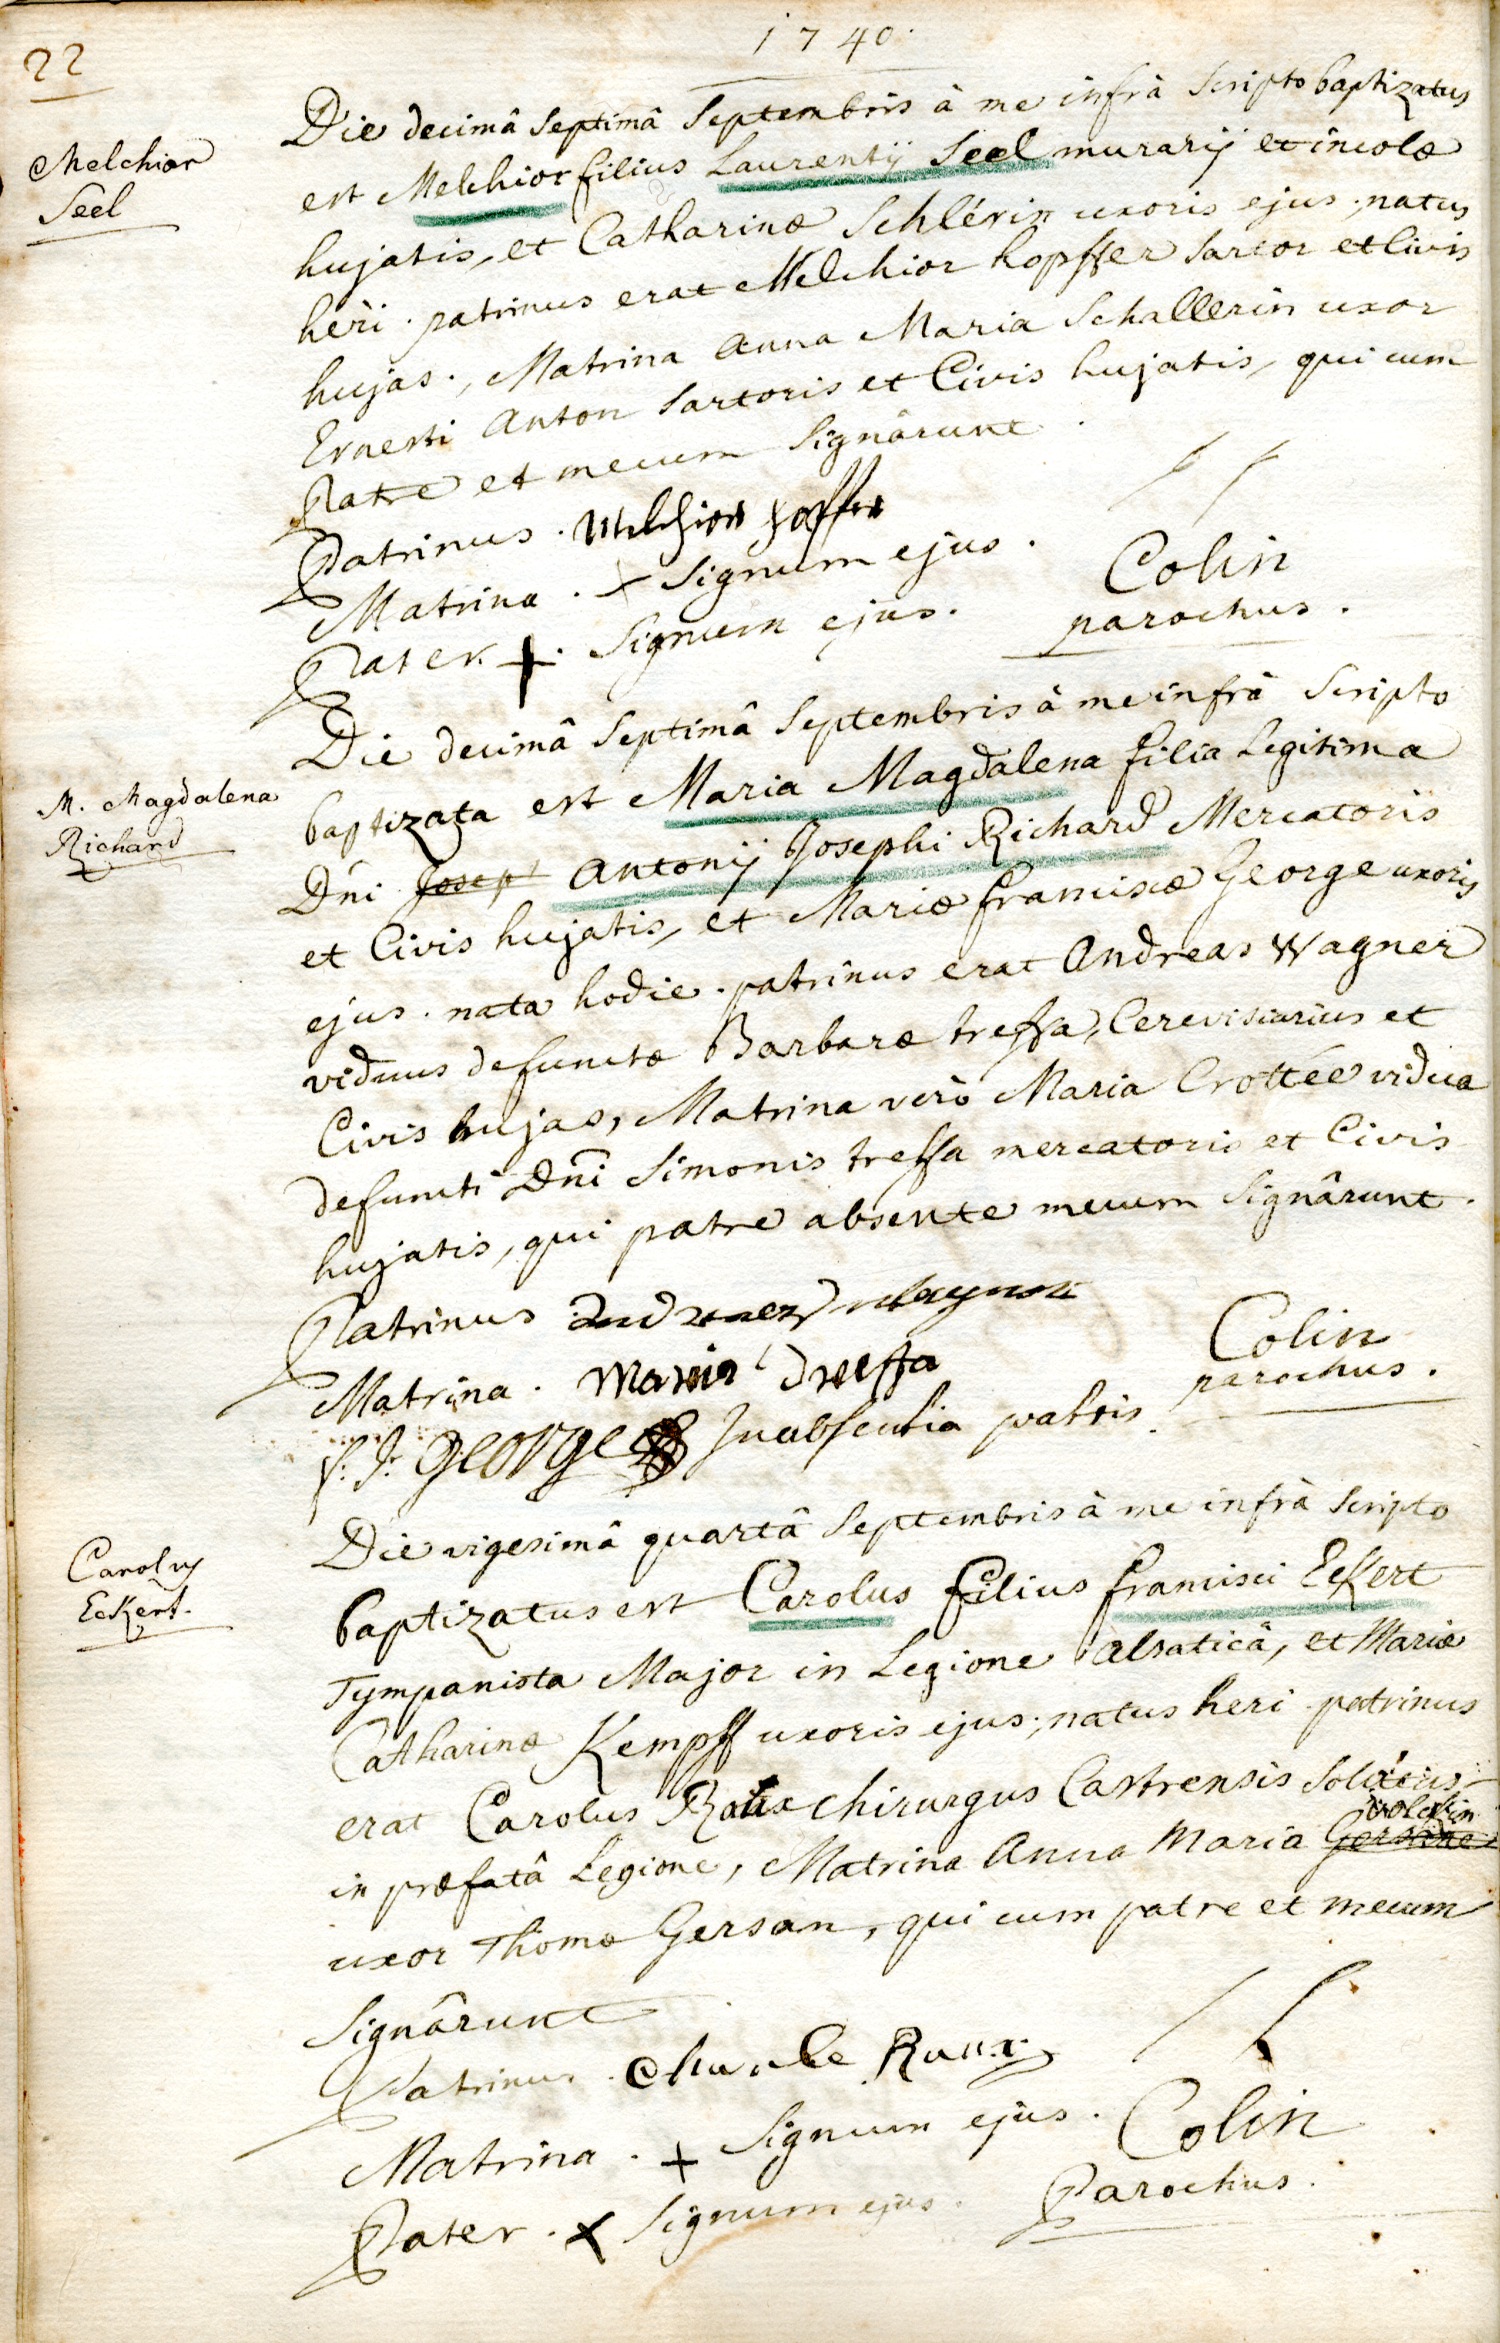 22
1740.
Melchior
Seel
Die decimâ Septimâ Septembris à me infrà Scripto baptizatus
est Melchior filius Laurentij Seel murarij et incolæ
hujatis, et Catharinæ Schlérin uxoris ejus, natus
heri. patrinus erat Melchior hopffer Sartor et Civis
hujas., Matrina Anna Maria Schallerin uxor
Ernesti Anton Sartoris et Civis hujatis, qui cum
Patre et mecum Signârunt.
Patrinus. Melchior Hopffer
Matrina. + Signum ejus.
Pater. +. Signum ejus.
Colin
parochus.
M. Magdalena
Richard
Die decimâ Septimâ Septembris à me infrà Scripto
baptizata est Maria Magdalena filia Legitima
Dñi Joseph Antonij Josephi Richard Mercatoris
et Civis hujatis, et Mariæ franciscæ George uxoris
ejus. nata hodie. patrinus erat Andreas Wagner
viduus defunctæ Barbaræ tressa, Cerevisiarius et
Civis hujas, Matrina verò Maria Crottée vidua
defuncti Dñi Simonis tressa mercatoris et Civis
hujatis, qui patre absente mecum Signârunt.
Patrinus Andreas Wagner
Matrina. Maria Dressa
George In absentia patris.
Colin
parochus.
Carolus
Eckert.
Die vigesimâ quartâ Septembris à me infrà Scripto
baptizatus est Carolus filius francisci Eckert
Tympanista Major in Legione Alsaticâ, et Mariæ
Catharinæ Kempff uxoris ejus, natus heri. patrinus
erat Carolus Roux Chirurgus Castrensis
in præfatâ Legione, Matrina Anna Maria
uxor Thomæ Gersan, qui cum patre et mecum
Signârunt
Patrinus. Charle Roux
Matrina. + Signum ejus.
Pater. x Signum ejus.
Colin
Parochus.